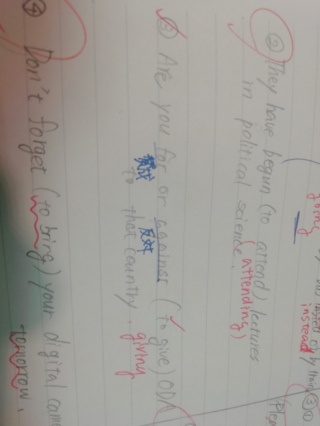 going
instead
③①
② They have begun (to attend) lectures
(attending)
in political science.
③ Are you for or against (to give) ODA
賛成 反対 giving
to that country.
④ Don't forget (to bring) your digital cam
tomorrow.